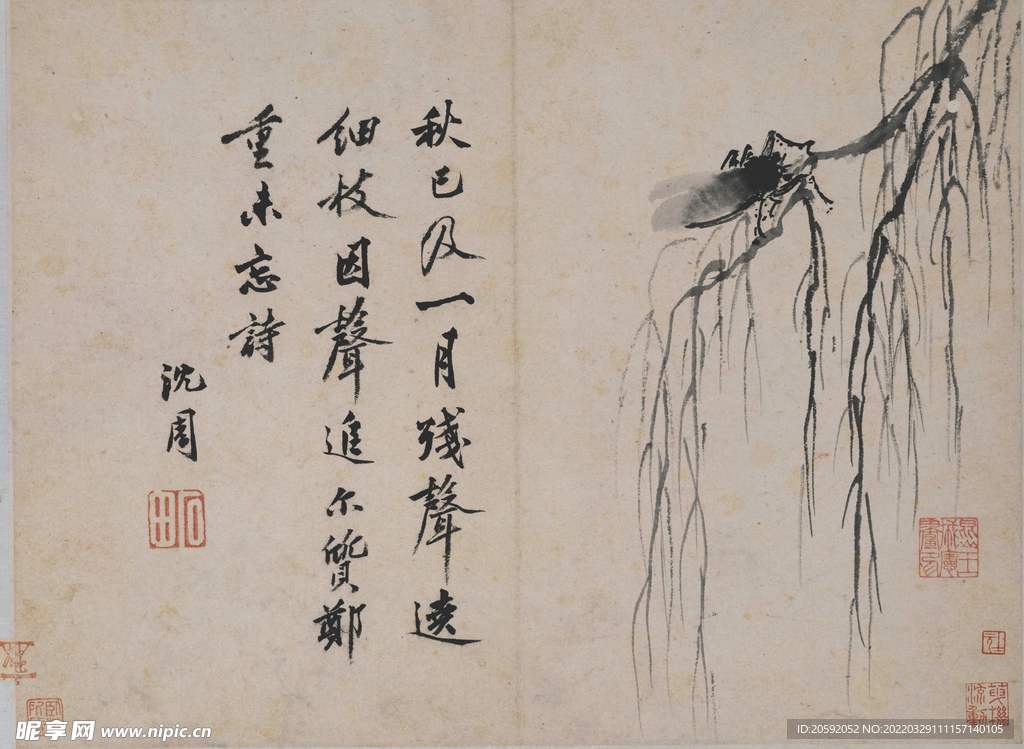 秋已及一月殘聲遶
細枝因聲進尔質鄭
重未忘詩
沈周
石田
昵享网 www.nipic.cn
ID:20592052 NO:20220329111157140105